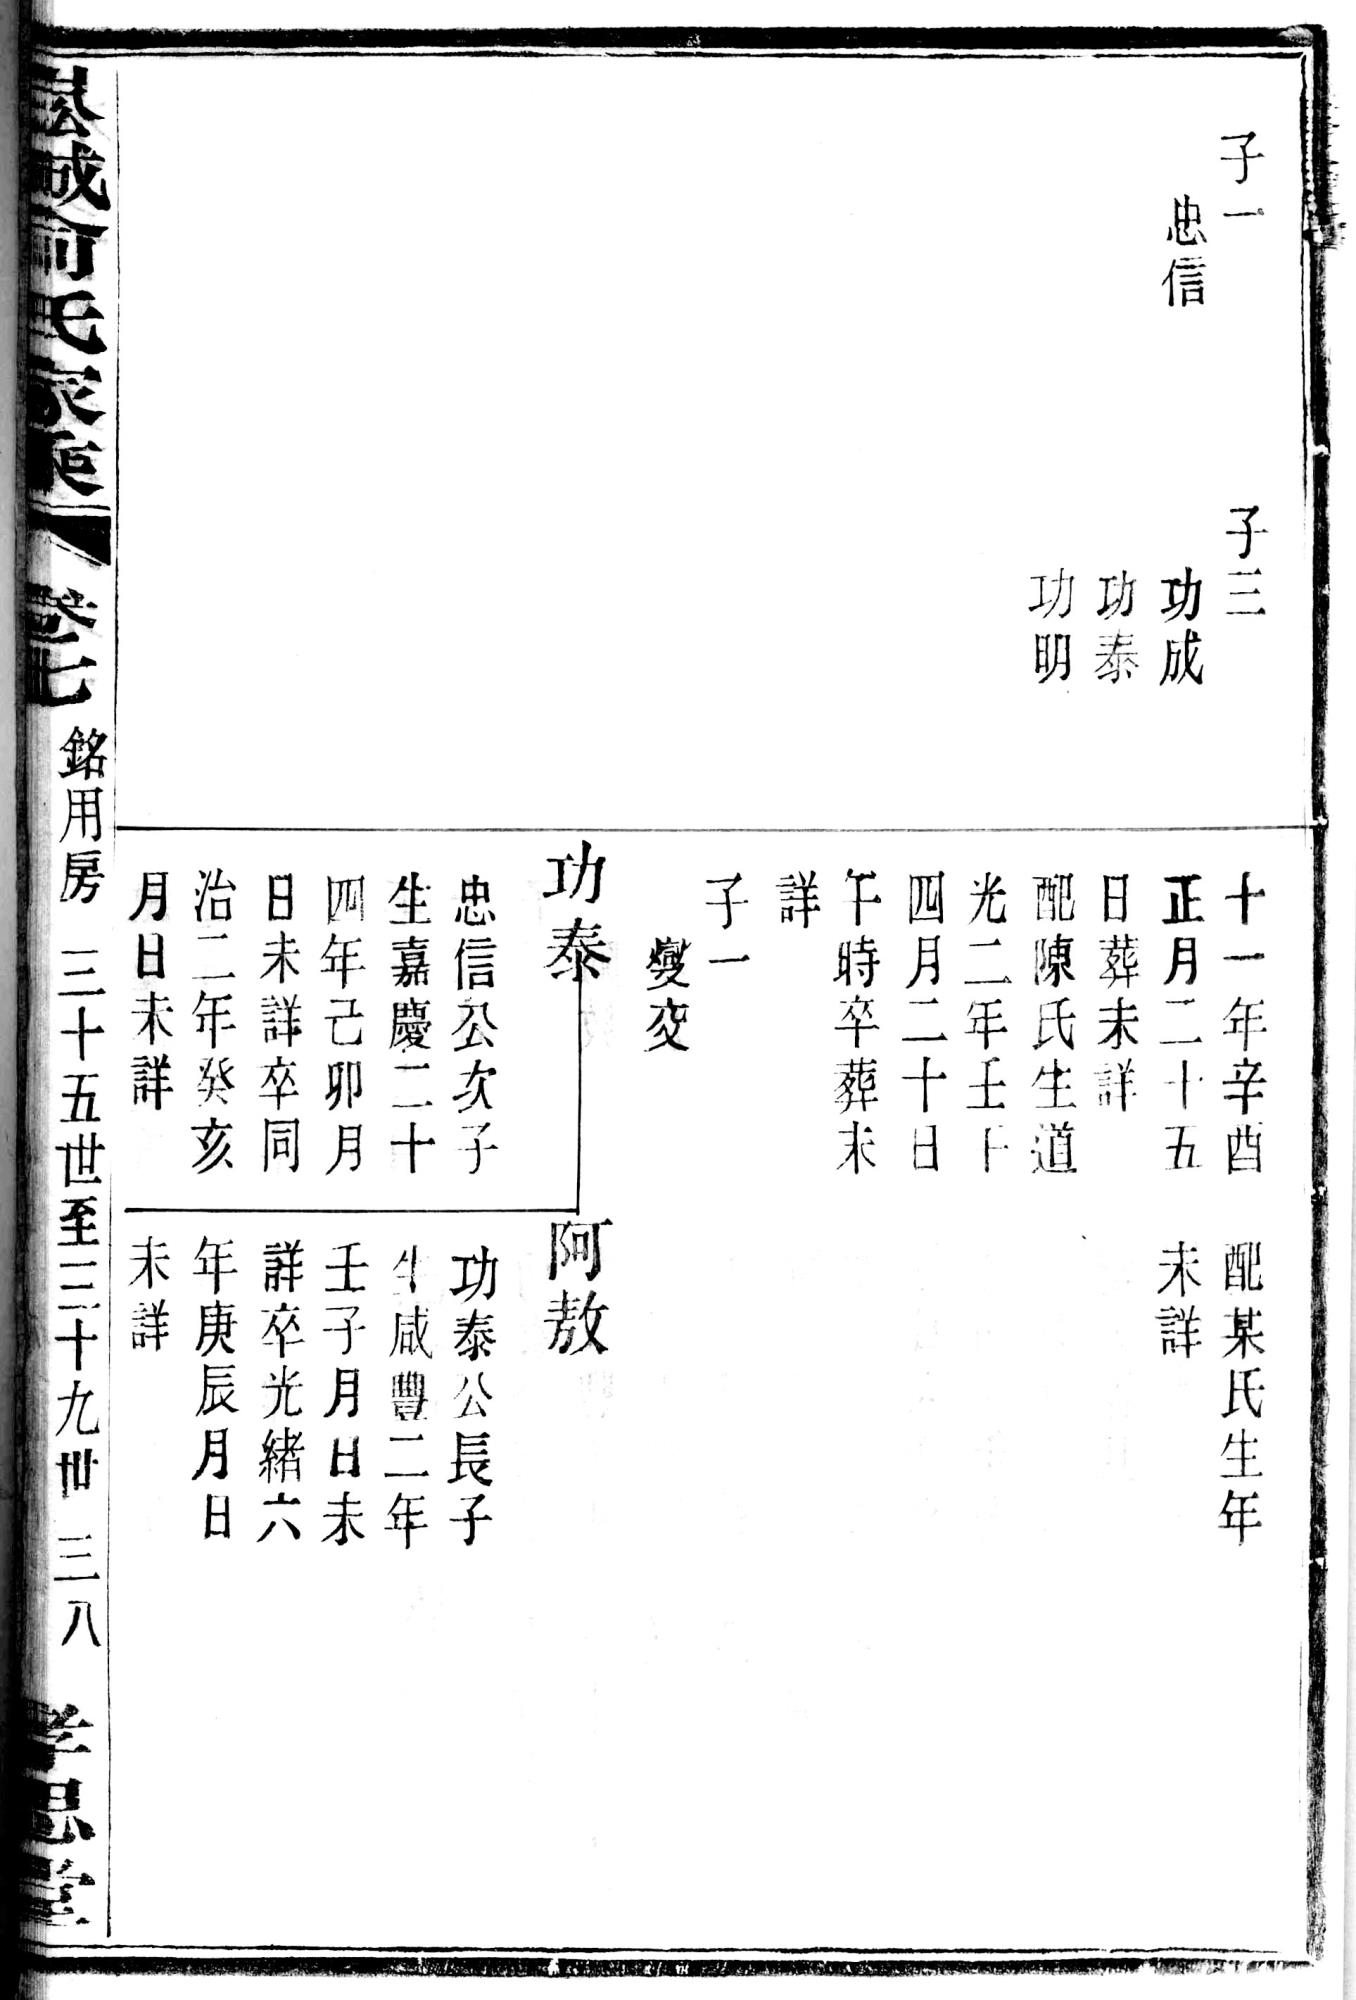 子一
忠信
子三
功成
功泰
功明
十一年辛酉
正月二十五
日葬未詳
配陳氏生道
光二年壬午
四月二十日
午時卒葬未
詳
子一
燮交
功泰
忠信公次子
生嘉慶二十
四年己卯月
日未詳卒同
治二年癸亥
月日未詳
配某氏生年
未詳
阿敖
功泰公長子
生咸豐二年
壬子月日未
詳卒光緒六
年庚辰月日
未詳
城俞氏家乘 卷七 銘用房 三十五世至三十九世 三八 孝思堂